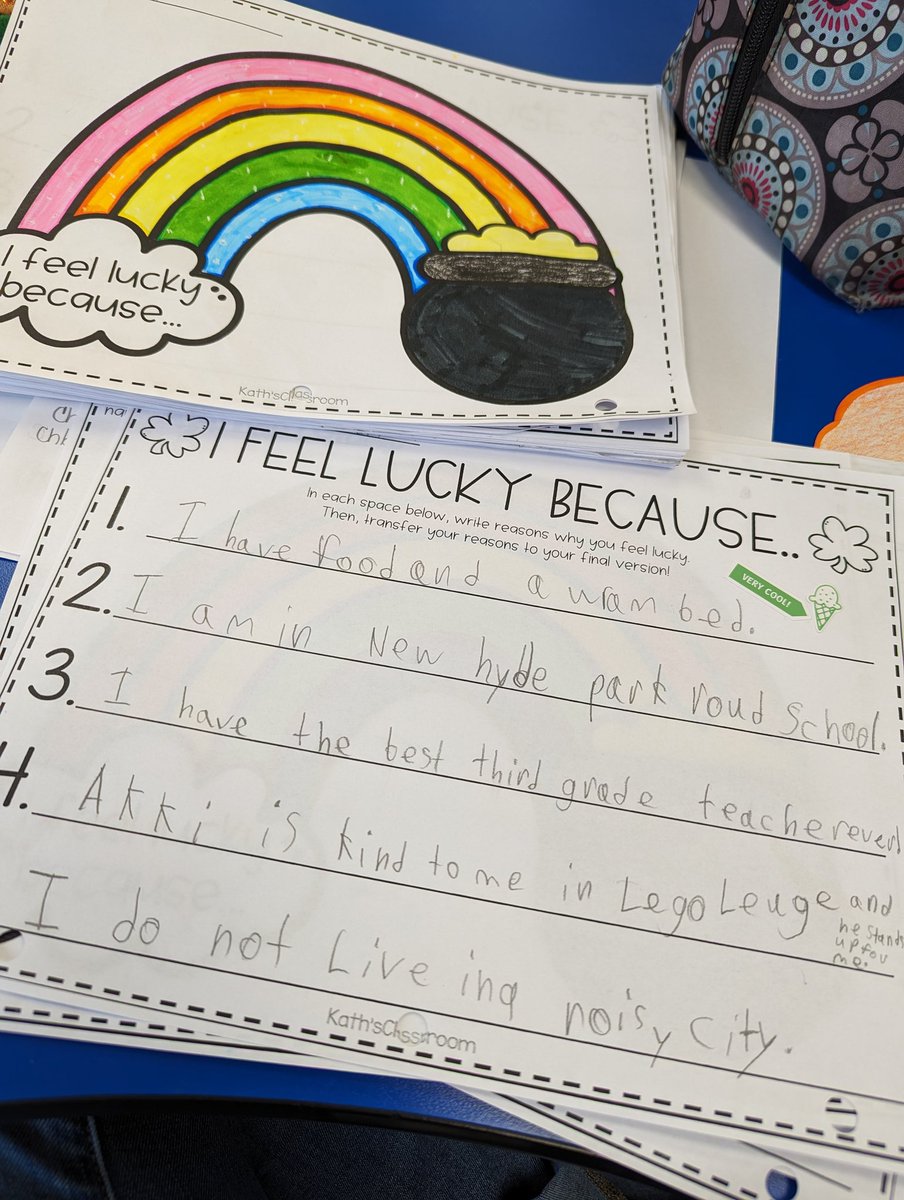 I feel lucky
because...
Kath'sClassroom
I FEEL LUCKY BECAUSE..
In each space below, write reasons why you feel lucky.
Then, transfer your reasons to your final version!
VERY COOL!
1. I have food and a wram bed.
2. I am in New hyde park roud School.
3. I have the best third grade teacher ever!
4. Akki is kind to me in Lego Leuge and
he stands
up for
me.
I do not Live in a noisy City.
Kath'sClassroom